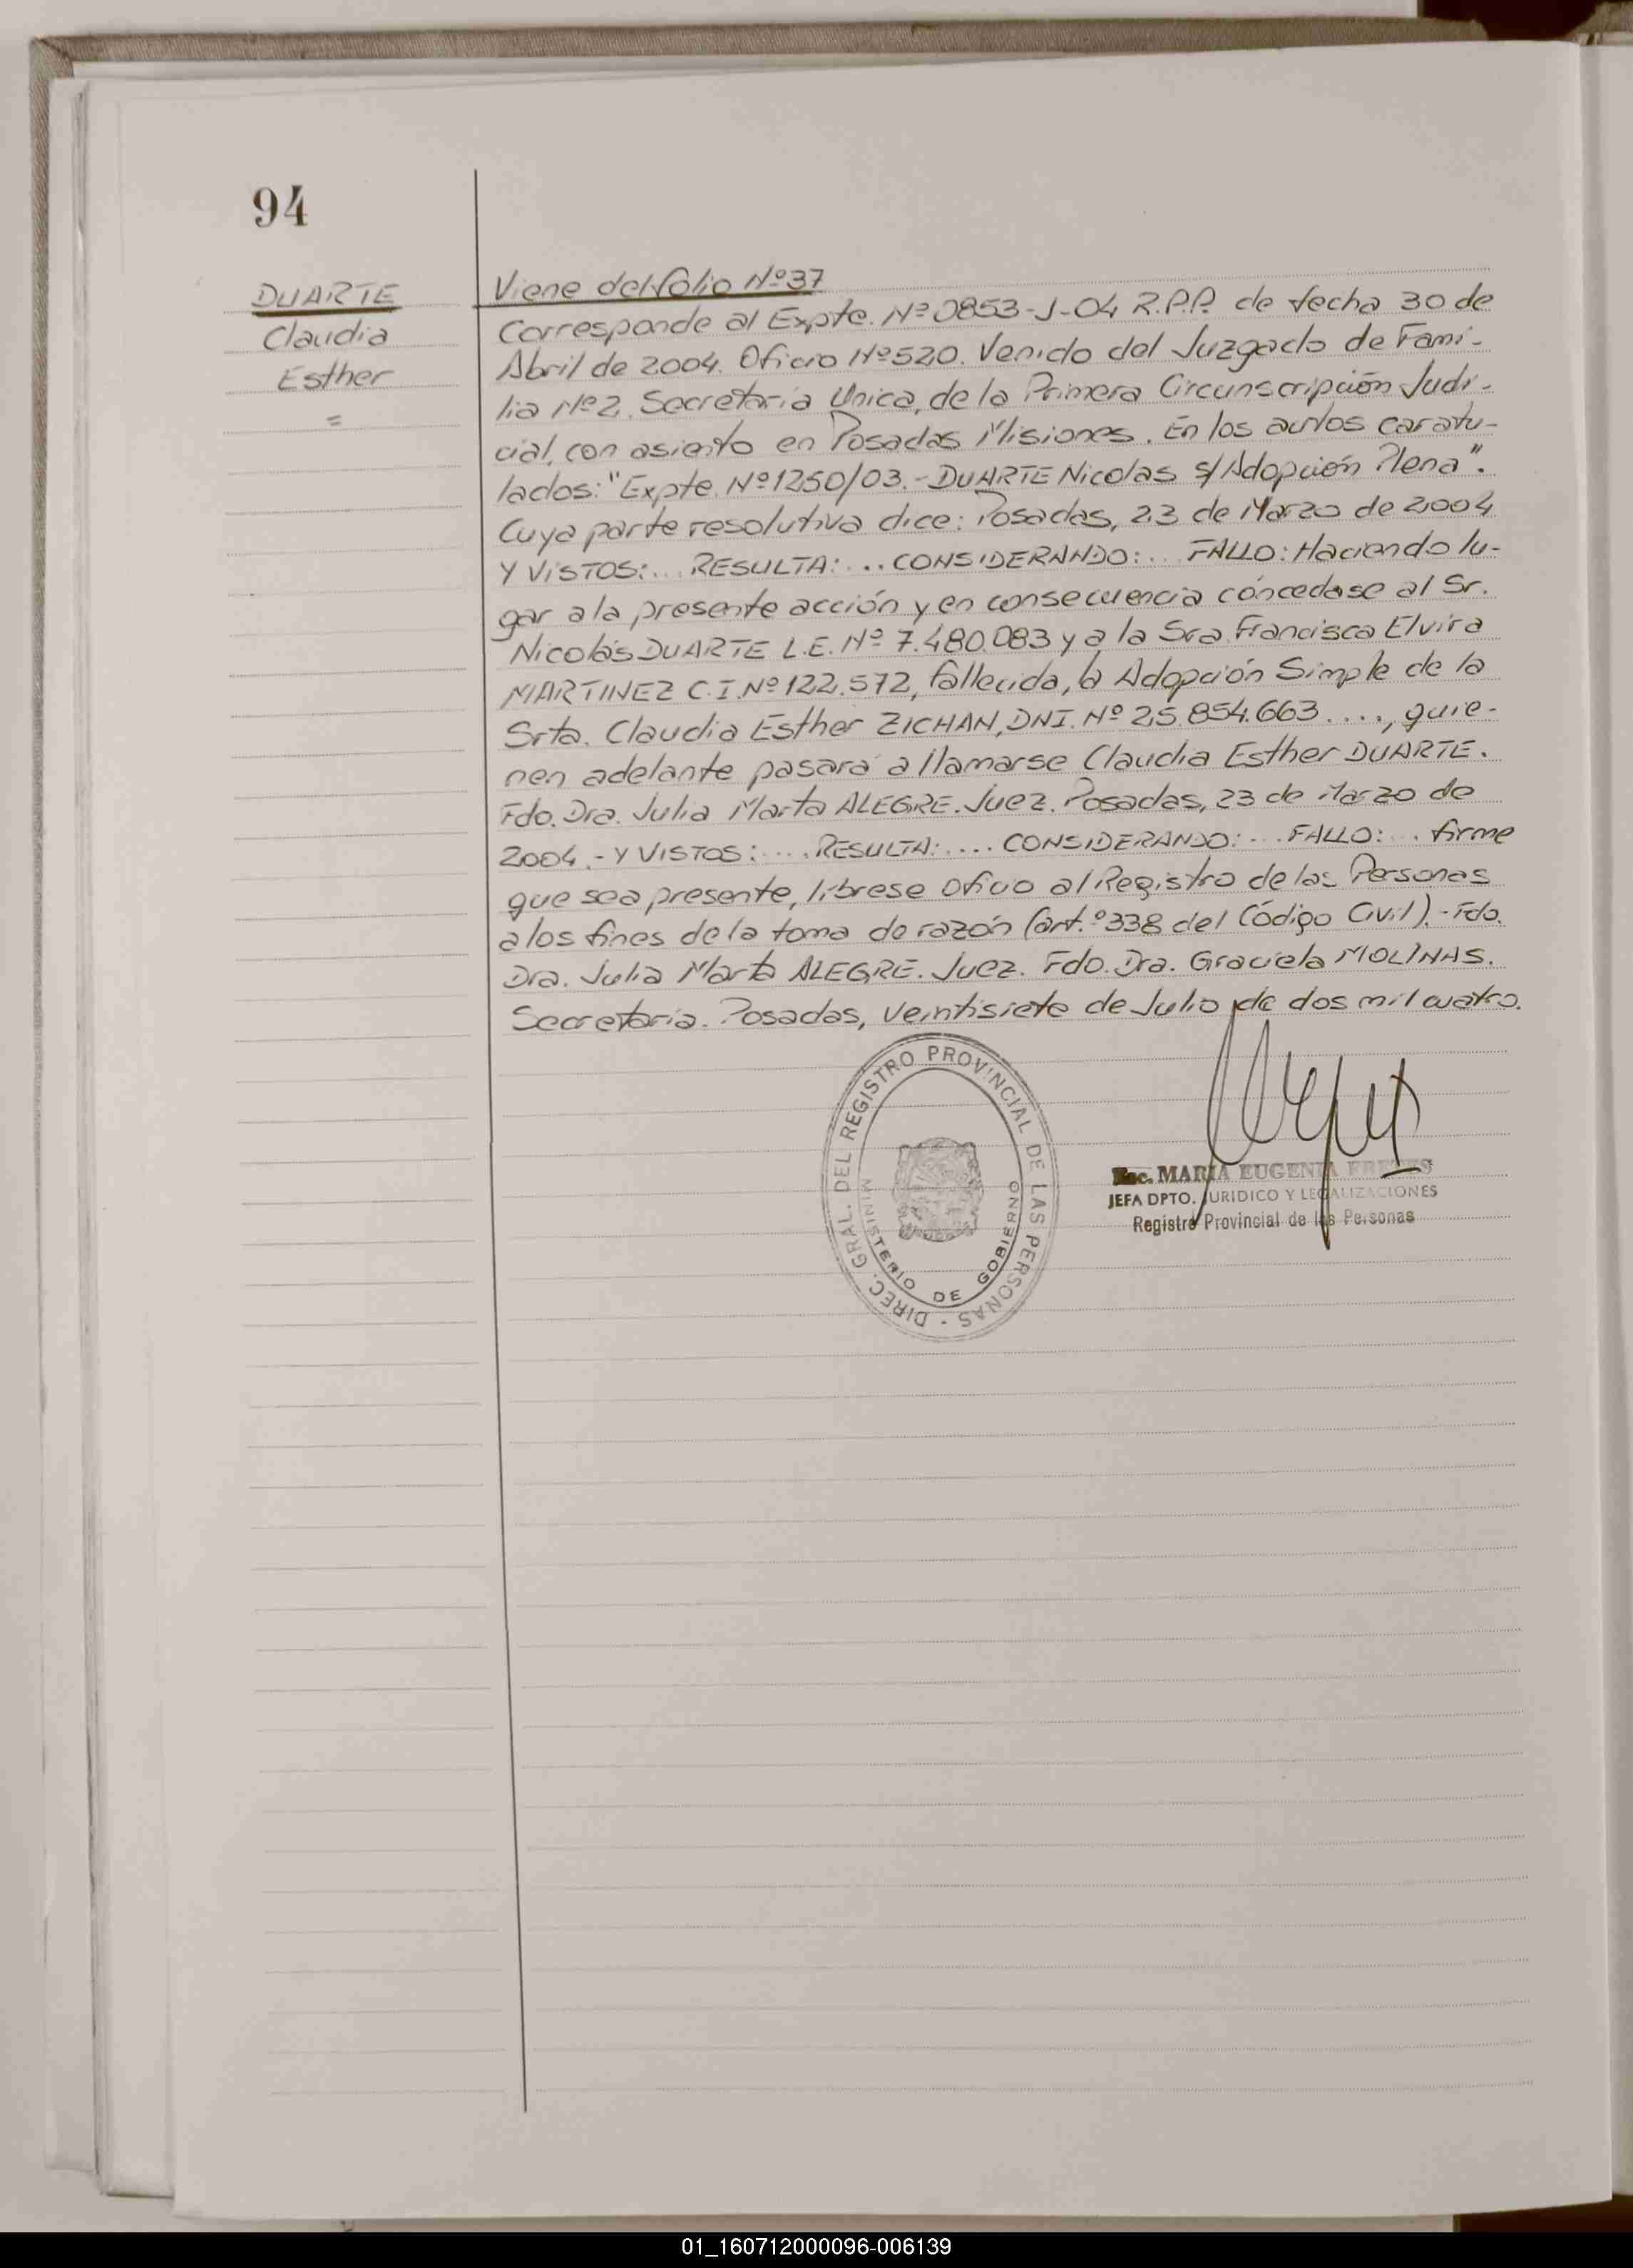 94
DUARTE
Claudia
Esther
=
Viene del folio Nº 37
Corresponde al Expte. Nº 0853-J-04 R.P.P. de fecha 30 de
Abril de 2004. Oficio Nº 520. Venido del Juzgado de Fami-
lia Nº 2, Secretaria Unica, de la Primera Circunscripción Judi-
cial, con asiento en Posadas Misiones. En los autos caratu-
lados: "Expte. Nº 1250/03.- DUARTE Nicolas s/ Adopción Plena".
Cuya parte resolutiva dice: Posadas, 23 de Marzo de 2004
Y VISTOS:... RESULTA:... CONSIDERANDO:... FALLO: Haciendo lu-
gar a la presente acción y en consecuencia cóncedase al Sr.
Nicolás DUARTE L.E. Nº 7.480.083 y a la Sra. Francisca Elvira
MARTINEZ C.I. Nº 122.572, fallecida, la Adopción Simple de la
Srta. Claudia Esther ZICHAN, DNI. Nº 25.854.663...., quie-
nen adelante pasará a llamarse Claudia Esther DUARTE.
Fdo. Dra. Julia Marta ALEGRE. Juez. Posadas, 23 de Marzo de
2004.- Y VISTOS:.... RESULTA:.... CONSIDERANDO:... FALLO:... firme
que sea presente, líbrese oficio al Registro de las Personas
a los fines de la toma de razón (art.º 338 del Código Civil).- Fdo.
Dra. Julia Marta ALEGRE. Juez. Fdo. Dra. Graciela MOLINAS.
Secretaria. Posadas, veintisiete de Julio de dos mil cuatro.
DIREC. GRAL. DEL REGISTRO PROVINCIAL DE LAS PERSONAS -
MINISTERIO DE GOBIERNO
Esc. MARIA EUGENIA FRETES
JEFA DPTO. JURIDICO Y LEGALIZACIONES
Registro Provincial de las Personas
01_160712000096-006139